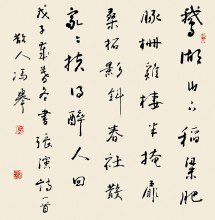 鹅湖山下稻粱肥
豚栅雞棲半掩扉
桑柘影斜春社散
家家扶得醉人回
戊子年暮冬書張演詩一首
散人馮舉